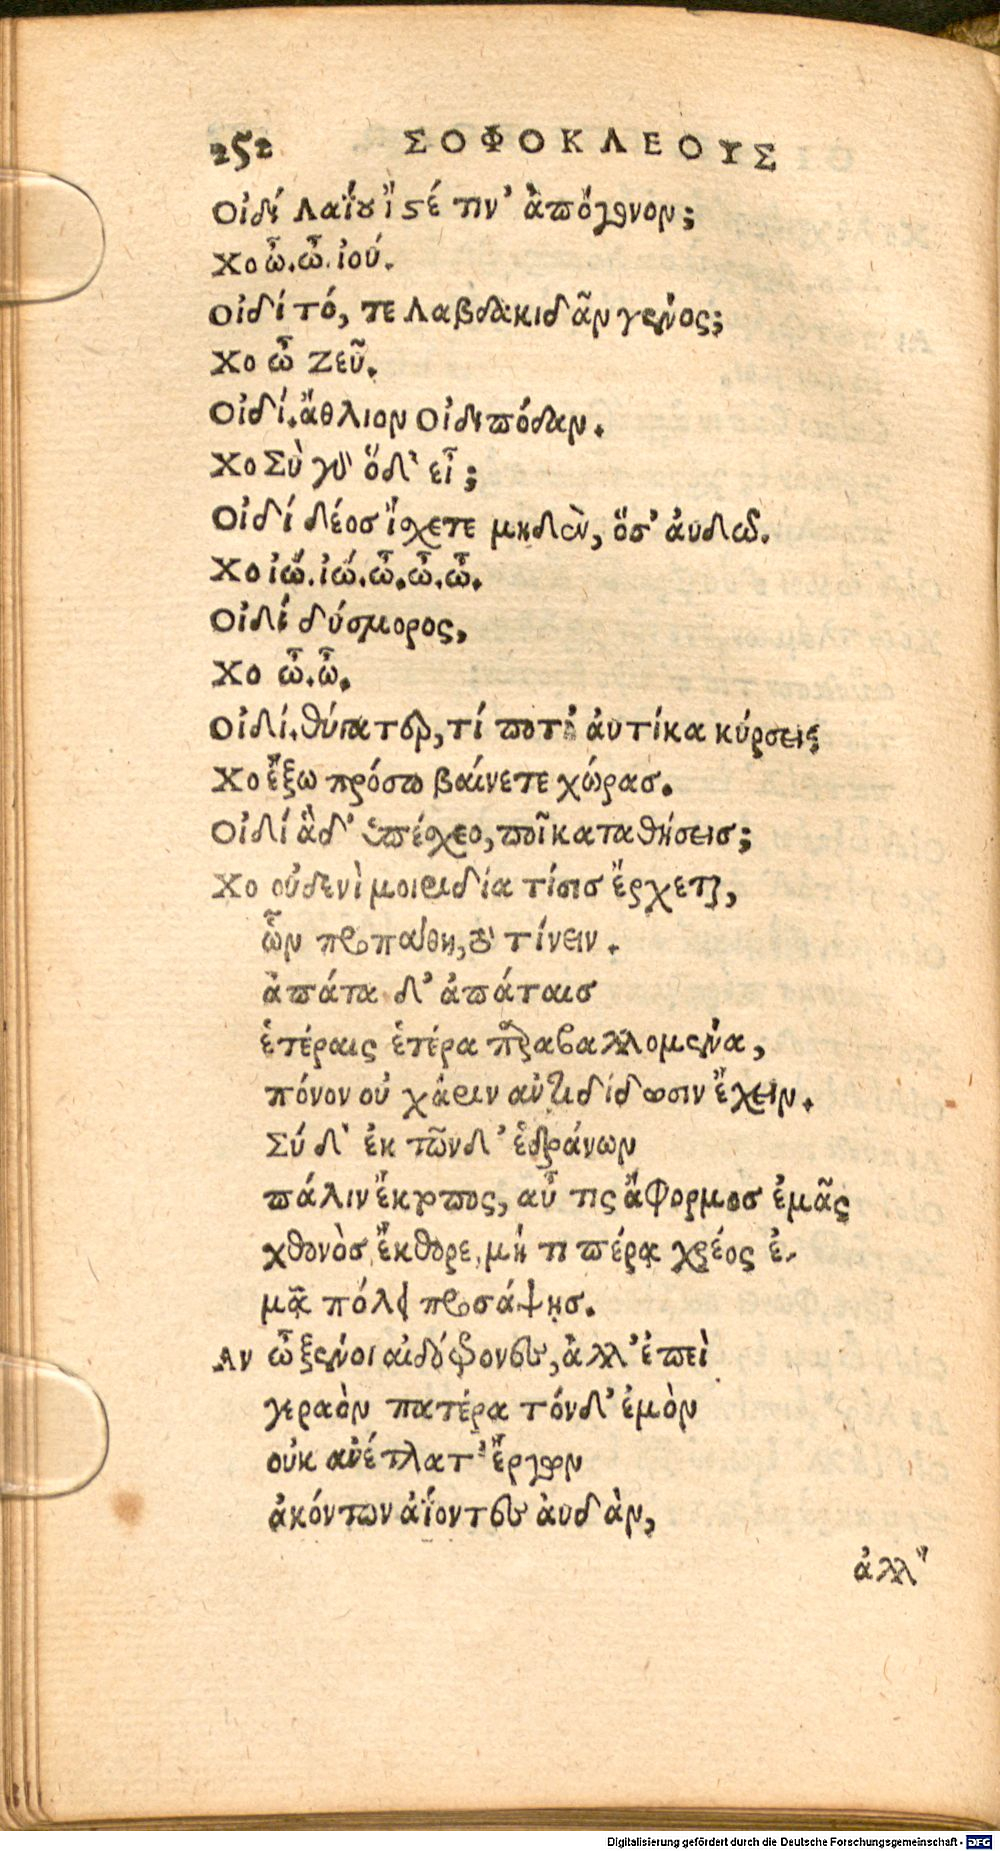 252 ΣΟΦΟΚΛΕΟΥΣ
Οἰδί Λαΐου ἴστέ τιν’ ἀπόγονον;
Χο ὦ.ὦ.ἰού.
Οἰδί τό, τε Λαβδακιδᾶν γένος;
Χο ὦ Ζεῦ.
Οἰδί.ἄθλιον Οἰδιπόδαν.
Χο Σὺ γὰρ ὅδ’ εἶ;
Οἰδί δέοσ ἴσχετε μηδὲν, ὅσ’ ἀυδῶ.
Χο ἰώ.ἰώ.ὦ.ὦ.ὦ.
Οἰδί δύσμορος,
Χο ὦ.ὦ.
Οἰδί.θύγατερ, τί ποτ’ ἀυτίκα κύρσει;
Χο ἔξω πρόσω βαίνετε χώρασ.
Οἰδί ἃδ’ ὑπέσχεο, ποῖ καταθήσεισ;
Χο οὐδενὶ μοιριδία τίσισ ἔρχεται,
ὧν προπάθῃ, τὸ τίνειν.
ἀπάτα δ’ ἀπάταισ
ἑτέραις ἑτέρα παραβαλλομένα,
πόνον οὐ χάριν ἀντιδίδωσιν ἔχειν.
Σύ δ’ ἐκ τῶνδ’ ἑδράνων
πάλιν ἔκτοπος, αὖ τις ἄφορμοσ ἐμᾶς
χθονὸσ ἔκθορε, μή τι πέρᾳ χρέος ἐ-
μᾷ πόλει προσάψῃσ.
Αν ὦ ξένοι αἰδόφρονες, ἀλλ’ ἐπεὶ
γεραὸν πατέρα τόνδ’ ἐμὸν
οὐκ ἀνέτλατ’ ἔργων
ἀκόντων ἀΐοντες ἀυδὰν,
ἀλλ’
Digitalisierung gefördert durch die Deutsche Forschungsgemeinschaft - DFG